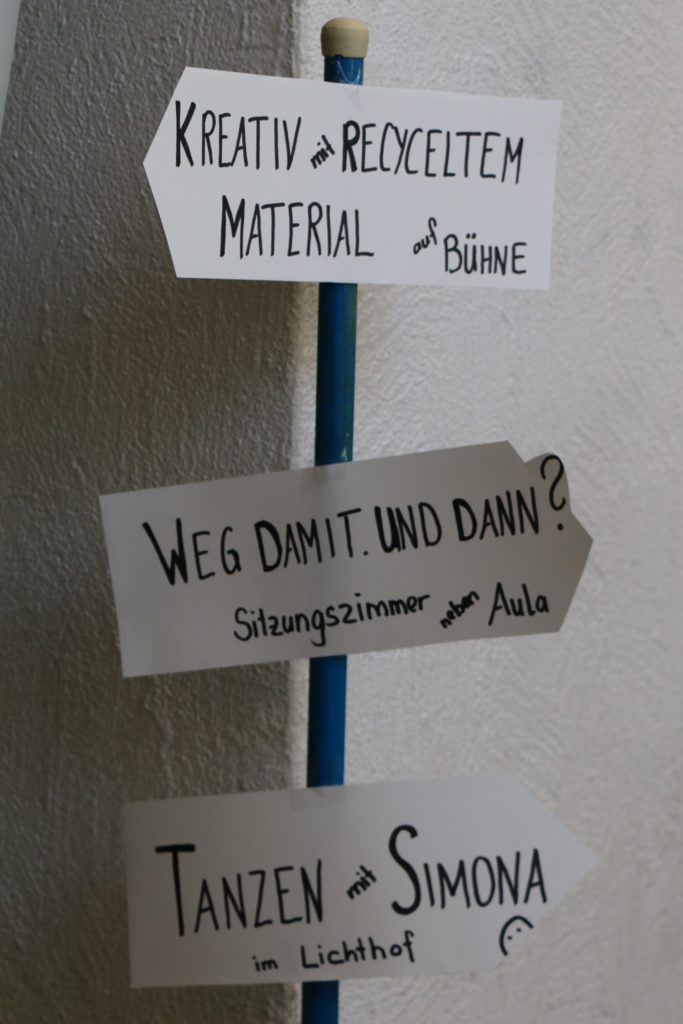 KREATIV mit RECYCELTEM
MATERIAL auf BÜHNE
WEG DAMIT. UND DANN?
Sitzungszimmer neben Aula
TANZEN mit SIMONA
im Lichthof